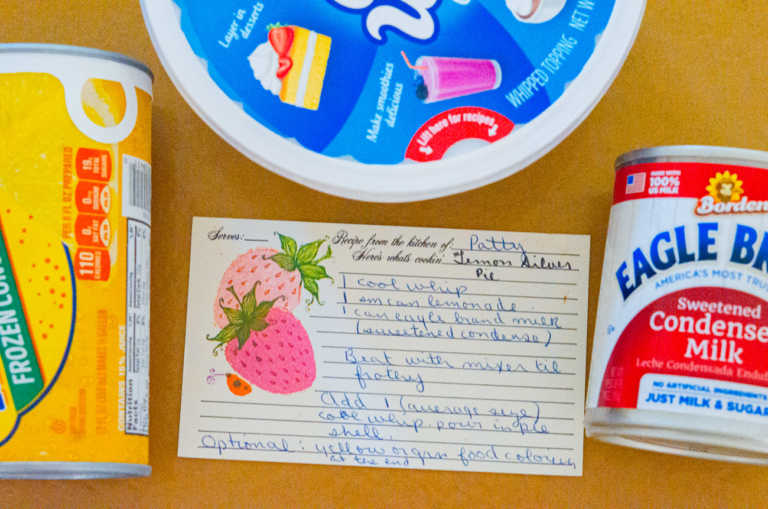 Layer in
desserts
Make smoothies
delicious
Lift here for recipes
WHIPPED TOPPING
NET W
PER 8 FL OZ PREPARED
110
0g
0g
19g
FROZEN CON
CONTAINS 15% JUICE
Nutrition
Facts
Serves:
Recipe from the kitchen of: Patty
Here's whats cookin': Lemon Silver
Pie
1 cool whip
1 sm can lemonade
1 can eagle brand milk
(sweetened condense)
Beat with mixer til
frothy
Add 1 (average size)
cool whip. pour in pie
shell.
Optional: yellow or grn food coloring
at the end
MADE WITH
100%
US MILK
Borden
EAGLE BR
AMERICA'S MOST TRU
Sweetened
Condense
Milk
Leche Condensada Endul
NO ARTIFICIAL INGREDIENTS
JUST MILK & SUGAR